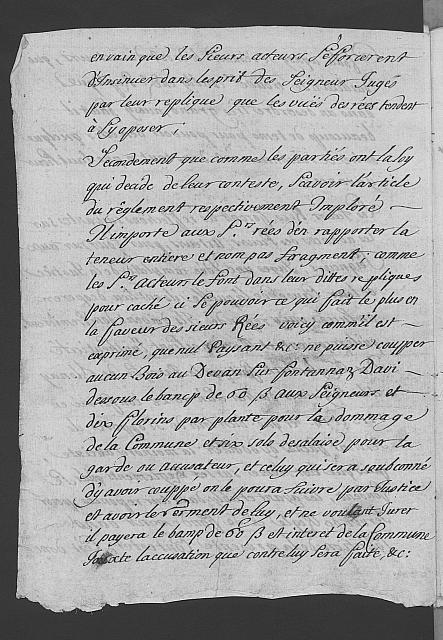 envain que les sieurs acteurs s'efforcerent
d'insinuer dans lesprit des Seigneur Jugés
par leur replique, que les vuës des rées tendent
à s'y oposer,
Secondement que comme les partiés ont la loy
qui decide de leur conteste, scavoir l'article
du rêglement respectivement Imploré —
Il importe aux S.rs rées d'en rapporter la
teneur entiere et non pas fragment; comme
les S.rs acteurs le font dans leur dittes repliques
pour caché si se pouvoir ce qui fait le plus en
la faveur des sieurs Rées voicy comm'il est —
exprimé, que nul Paysant &c: ne puisse coupper
aucun Bois au Devan sur fontannaz Davi
dessous le bamp de 60 ß aux Seigneurs et
dix florins par plante pour la dommage
de la Commune et six solo desalaise, pour la
garde ou acusateur, et celuy qui sera soubconné
d'y avoir couppé on le poura suivre par Justice
et avoir le serment de luy, et ne voulant Jurer
il payera le bamp de 60 ß et interet de la Commune
Juxte l'accusation que contre luy sera faite, &c: